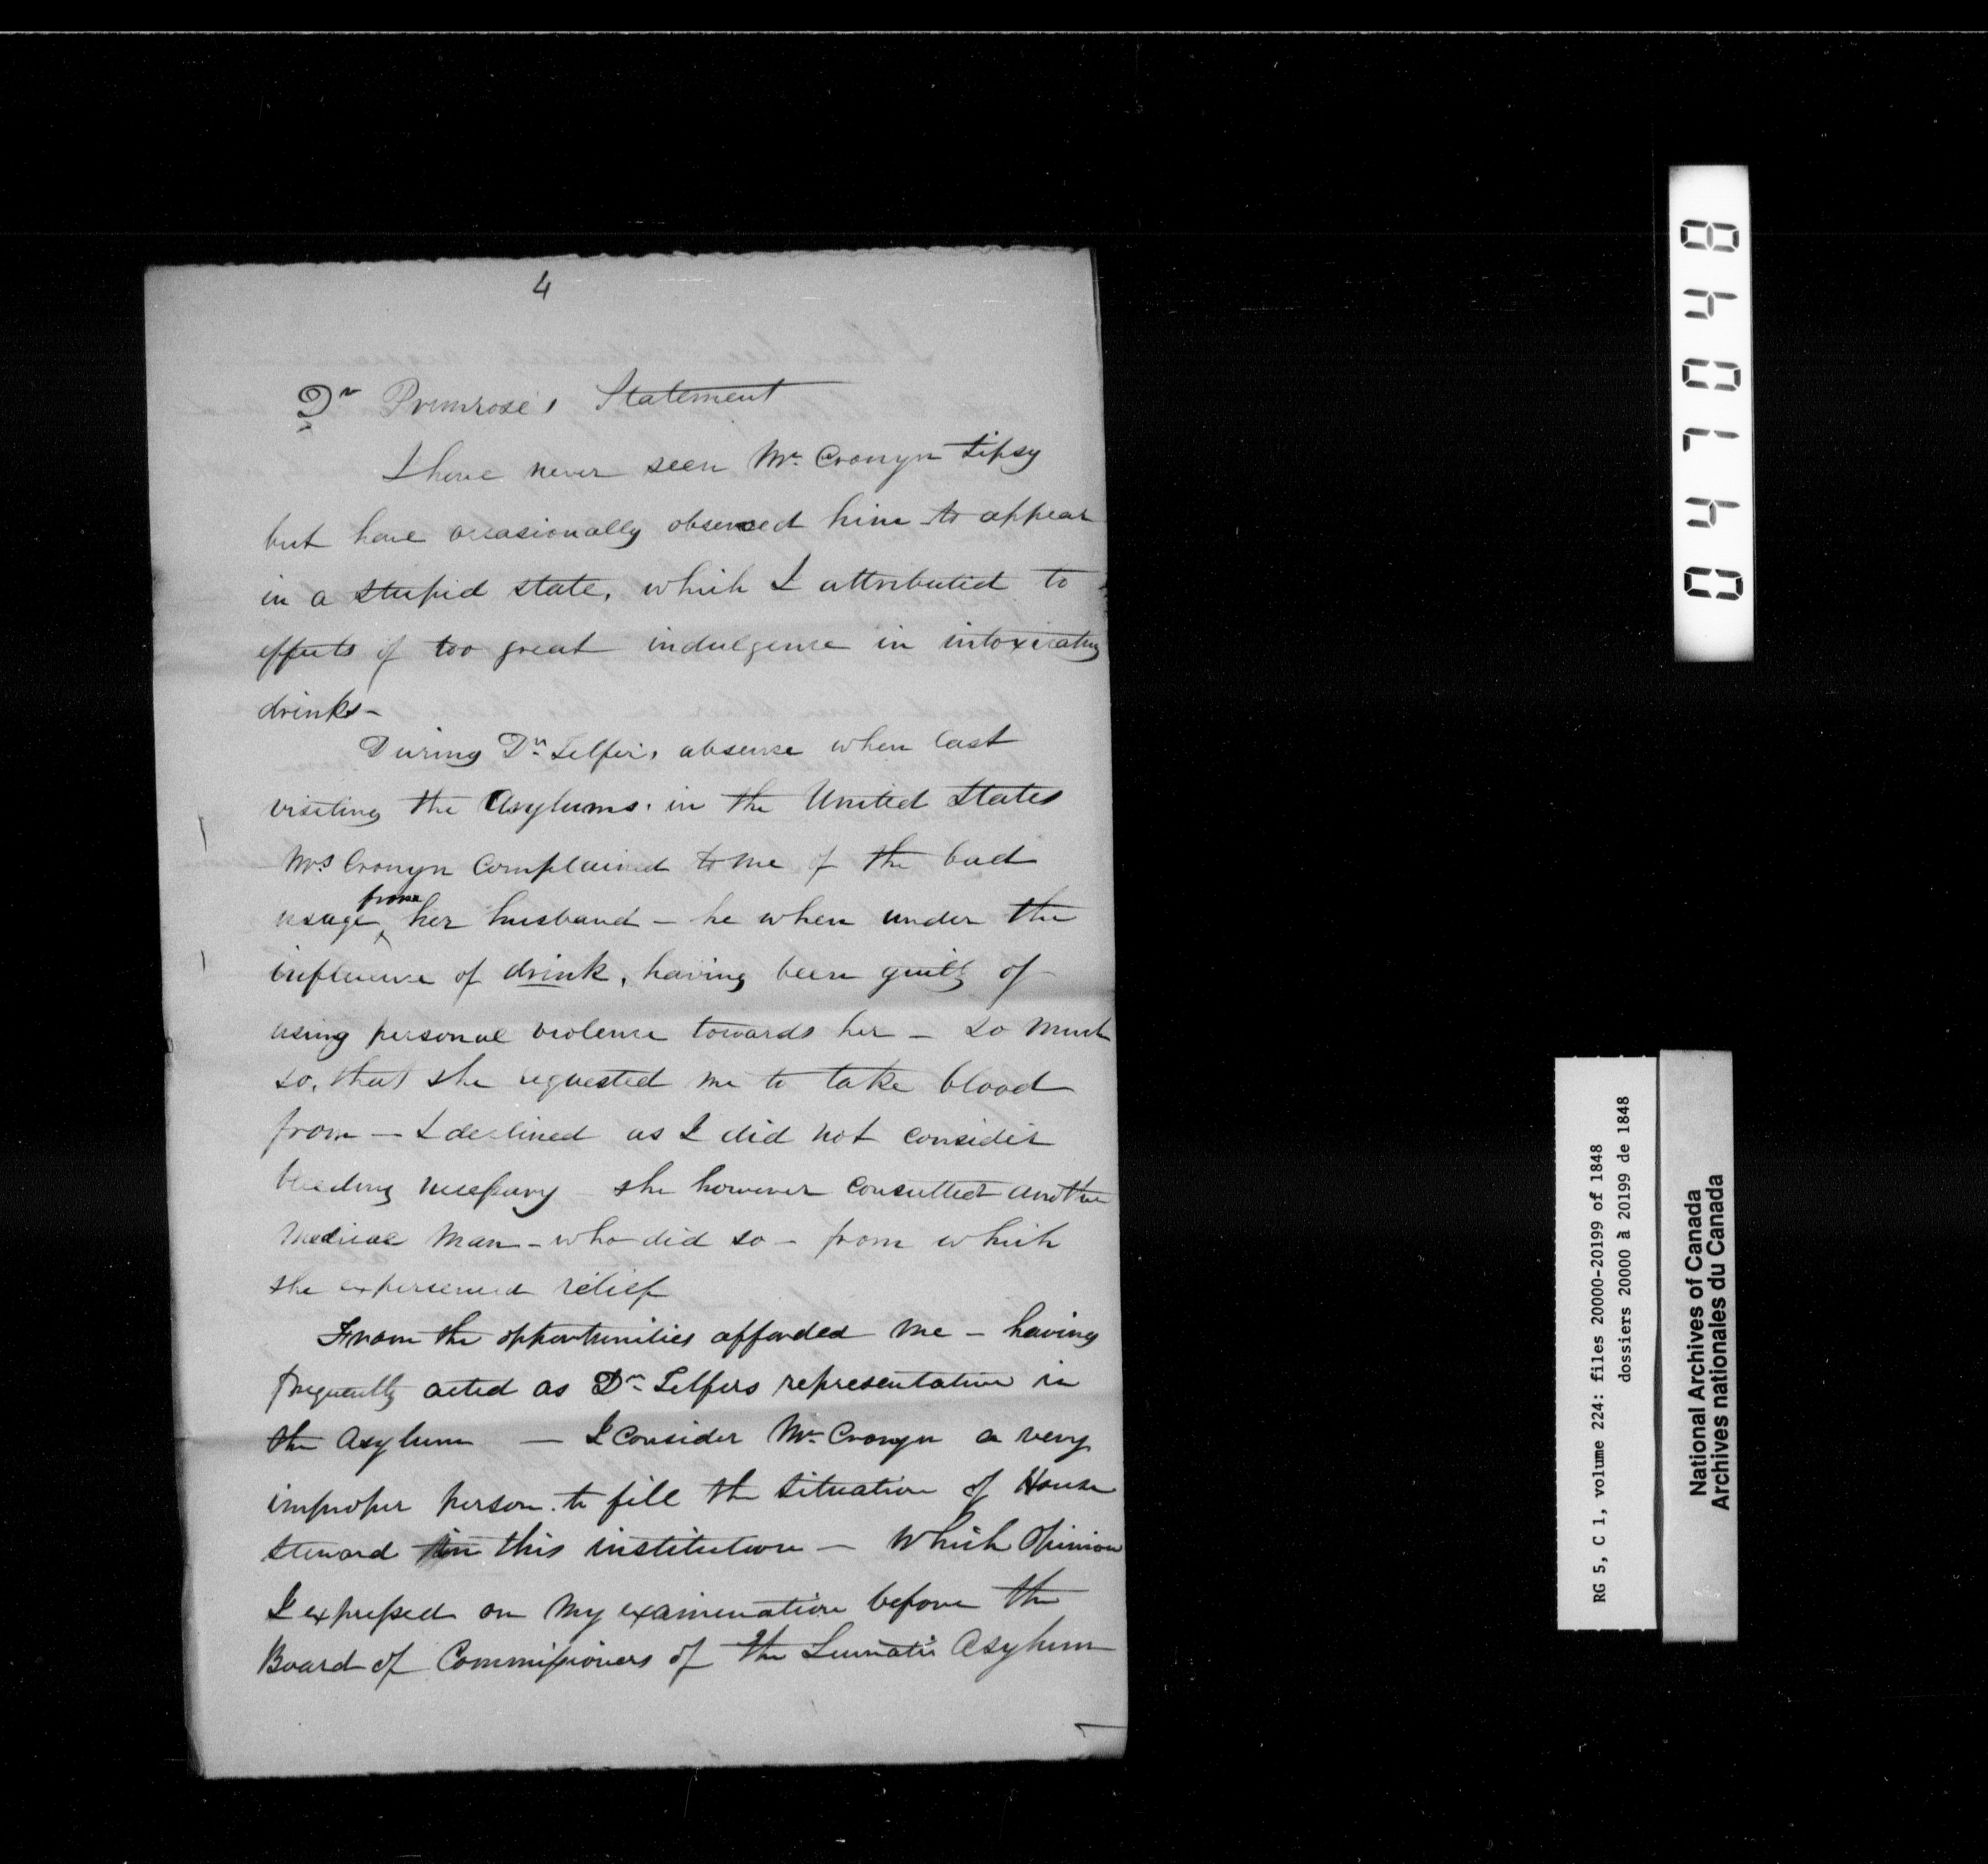 4
Dr Primrose's Statement
I have never seen Mr. Cronyn tipsy
but have occasionally observed him to appear
in a stupid state, which I attributed to
effects of too great indulgence in intoxicating
drinks-
During Dr. Telfer's absence when last
visiting the Asylums in the United States
Mrs Cronyn Complained to me of the bad
from
usage ‸ her husband - he when under the
influence of drink, having been guilty of
using personal violence towards her - so much
so, that she requested me to take blood
from - I declined as I did not consider
bleeding necessary she however consulted another
Medical Man - who did so - from which
she experienced relief
From the opportunities afforded me - having
frequently acted as Dr. Telfers representative in
the Asylum - I consider Mr. Cronyn a very
improper person to fill the situation of House
Steward in this institution - which opinion
I expressed on my examination before the
Board of Commissioners of the Lunatic Asylum
0471048
RG 5, C 1, volume 224: files 20000-20199 of 1848
dossiers 20000 à 20199 de 1848
National Archives of Canada
Archives nationales du Canada